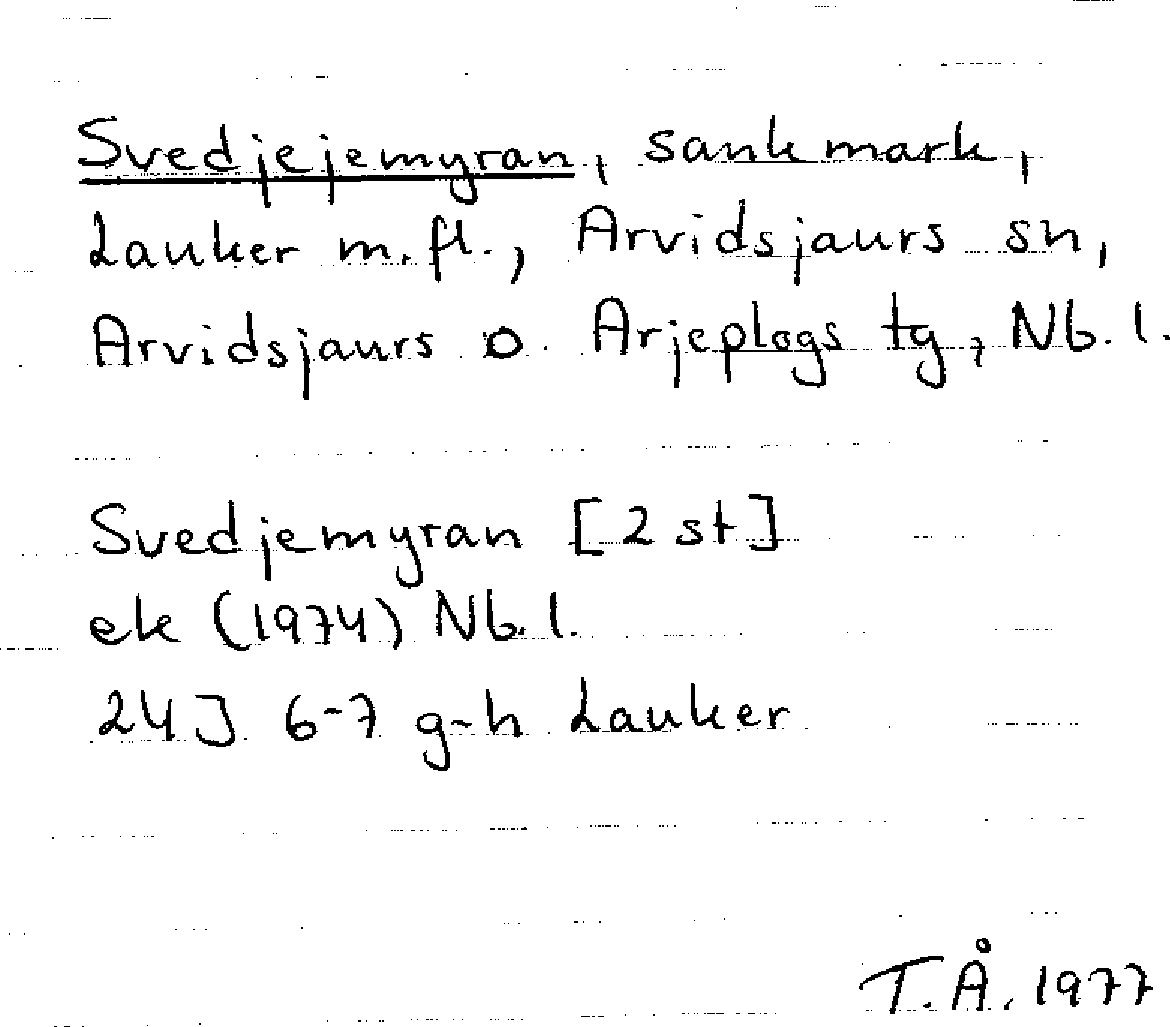 Svedjejemyran, sankmark,
Lauker m.fl., Arvidsjaurs sn,
Arvidsjaurs o. Arjeplogs tg, Nb.l.
Svedjemyran [2 st]
ek (1974) Nb.l.
24J 6-7 g-h Lauker
T.Å. 1977